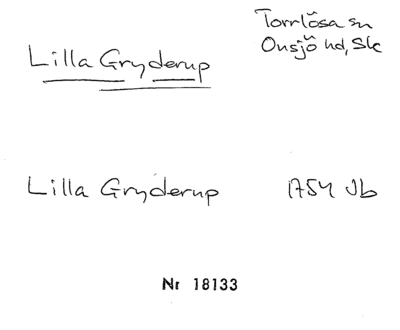 Torrlösa sn
Onsjö hd, Sk
Lilla Gryderup
Lilla Gryderup 1754 Jb
Nr 18133